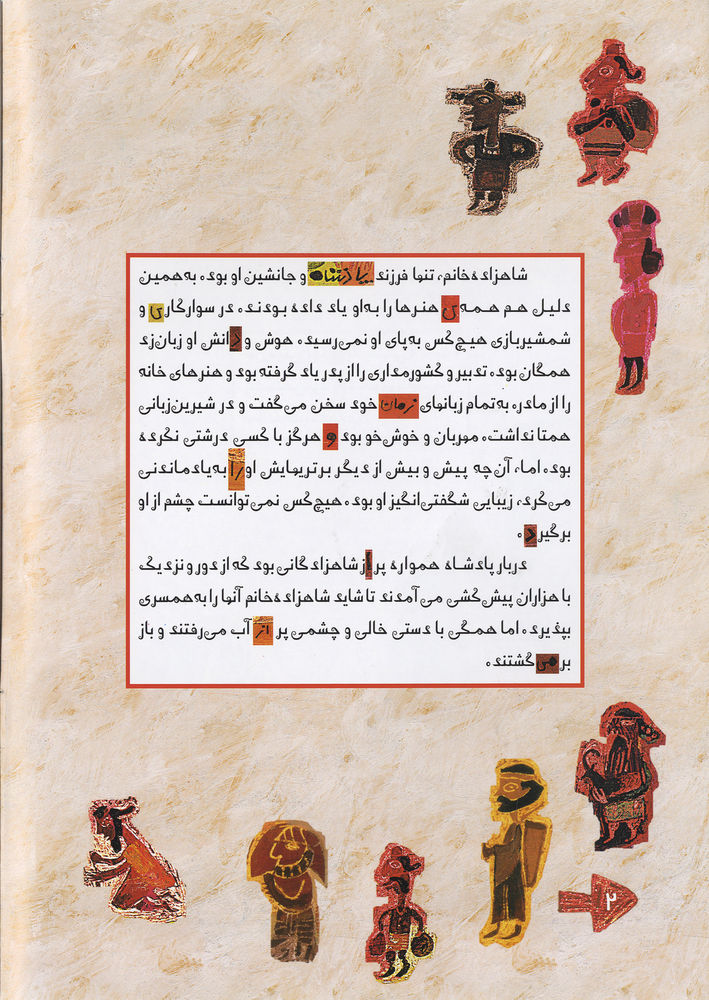 شاهزاده‌خانم، تنها فرزند پادشاه و جانشین او بود. به‌همین
دلیل هم همه‌ی هنرها را به‌او یاد داده بودند. در سوارکاری و
شمشیربازی هیچ‌کس به‌پای او نمی‌رسید. هوش و دانش او زبان‌زد
همگان بود. تدبیر و کشورمداری را از پدر یاد گرفته بود و هنرهای خانه
را از مادر. به‌تمام زبانهای زمان خود سخن می‌گفت و در شیرین‌زبانی
همتا نداشت. مهربان و خوش‌خو بود و هرگز با کسی درشتی نکرده
بود. اما، آن‌چه پیش و بیش از دیگر برتریهایش او را به‌یادماندنی
می‌کرد، زیبایی شگفتی‌انگیز او بود. هیچ‌کس نمی‌توانست چشم از او
برگیرد.
دربار پادشاه همواره پر از شاهزادگانی بود که از دور و نزدیک
با هزاران پیش‌کشی می‌آمدند تا شاید شاهزاده‌خانم آنها را به‌همسری
بپذیرد. اما همگی با دستی خالی و چشمی پر از آب می‌رفتند و باز
بر می‌گشتند.
۲